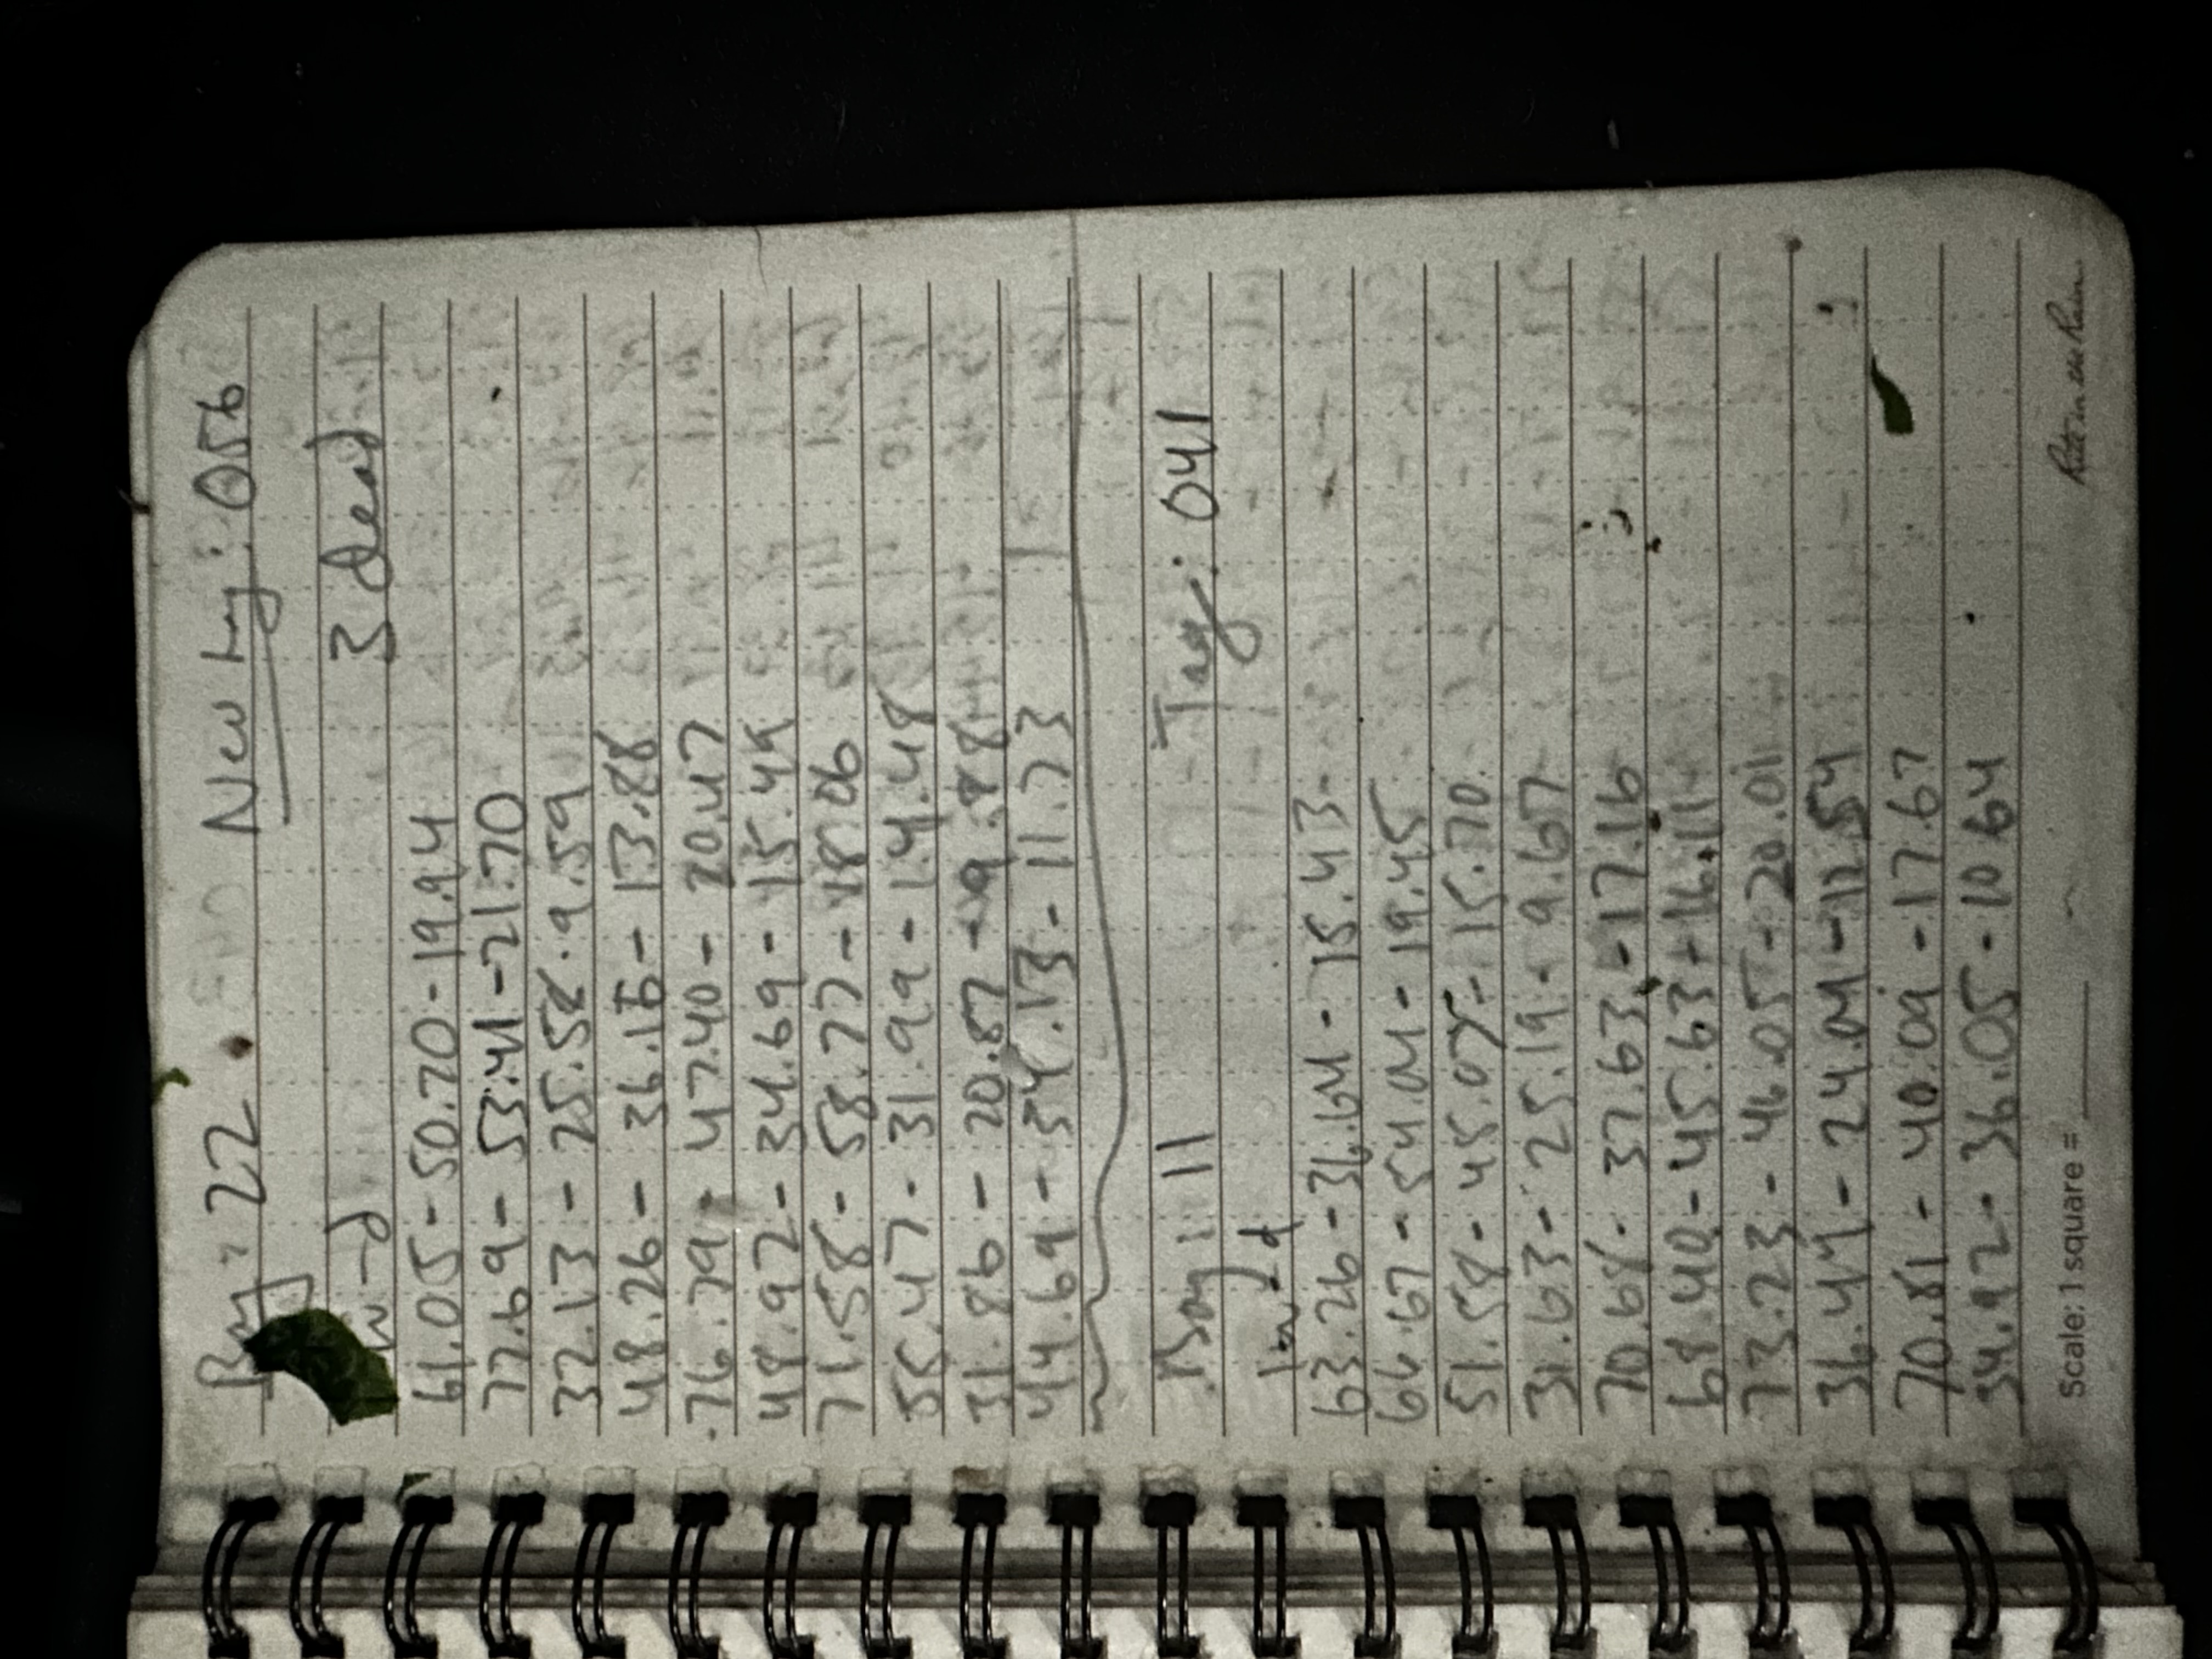 Bag: 22 New tag: 056
w-d 3 dead
61.05 - 50.70 - 19.94
77.69 - 53.41 - 21.70
32.13 - 25.58 - 9.59
48.26 - 36.16 - 13.88
76.79 - 47.40 - 20.47
48.92 - 34.69 - 15.49
71.58 - 58.77 - 18.06
55.47 - 31.99 - 14.48
31.86 - 20.87 - 9.88
44.69 - 34.13 - 11.73
Bag: 11 Tag: 041
lw-d
63.26 - 36.64 - 15.43
66.67 - 54.04 - 19.45
51.58 - 45.07 - 15.70
31.63 - 25.19 - 9.67
70.68 - 37.63 - 17.16
68.40 - 45.63 - 16.11
73.23 - 46.05 - 20.01
36.44 - 24.04 - 12.54
70.81 - 40.09 - 17.67
34.92 - 36.05 - 10.64
Scale: 1 square = ______ Rite in the Rain